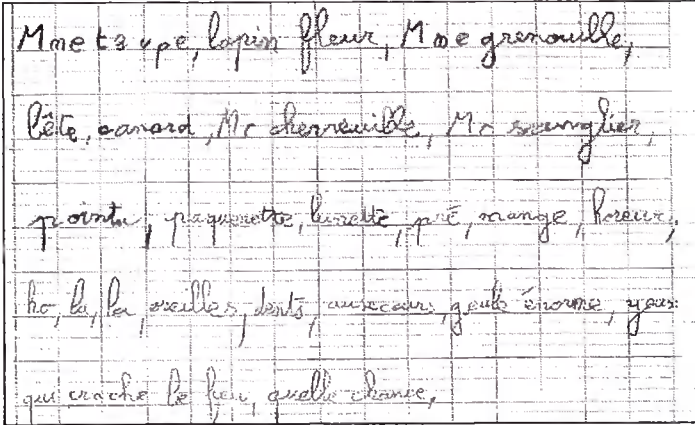 Mme t3upe, lapin fleur, Mme grenouille,
bête, canard, Mr cherreuille, Mr sanglier,
pointu, paquerette, lunette, pré, mange, horeur,
ho, la, la, oreilles, dents, ausecours, geule énorme, yeux
qui crache le feu, quelle chance,